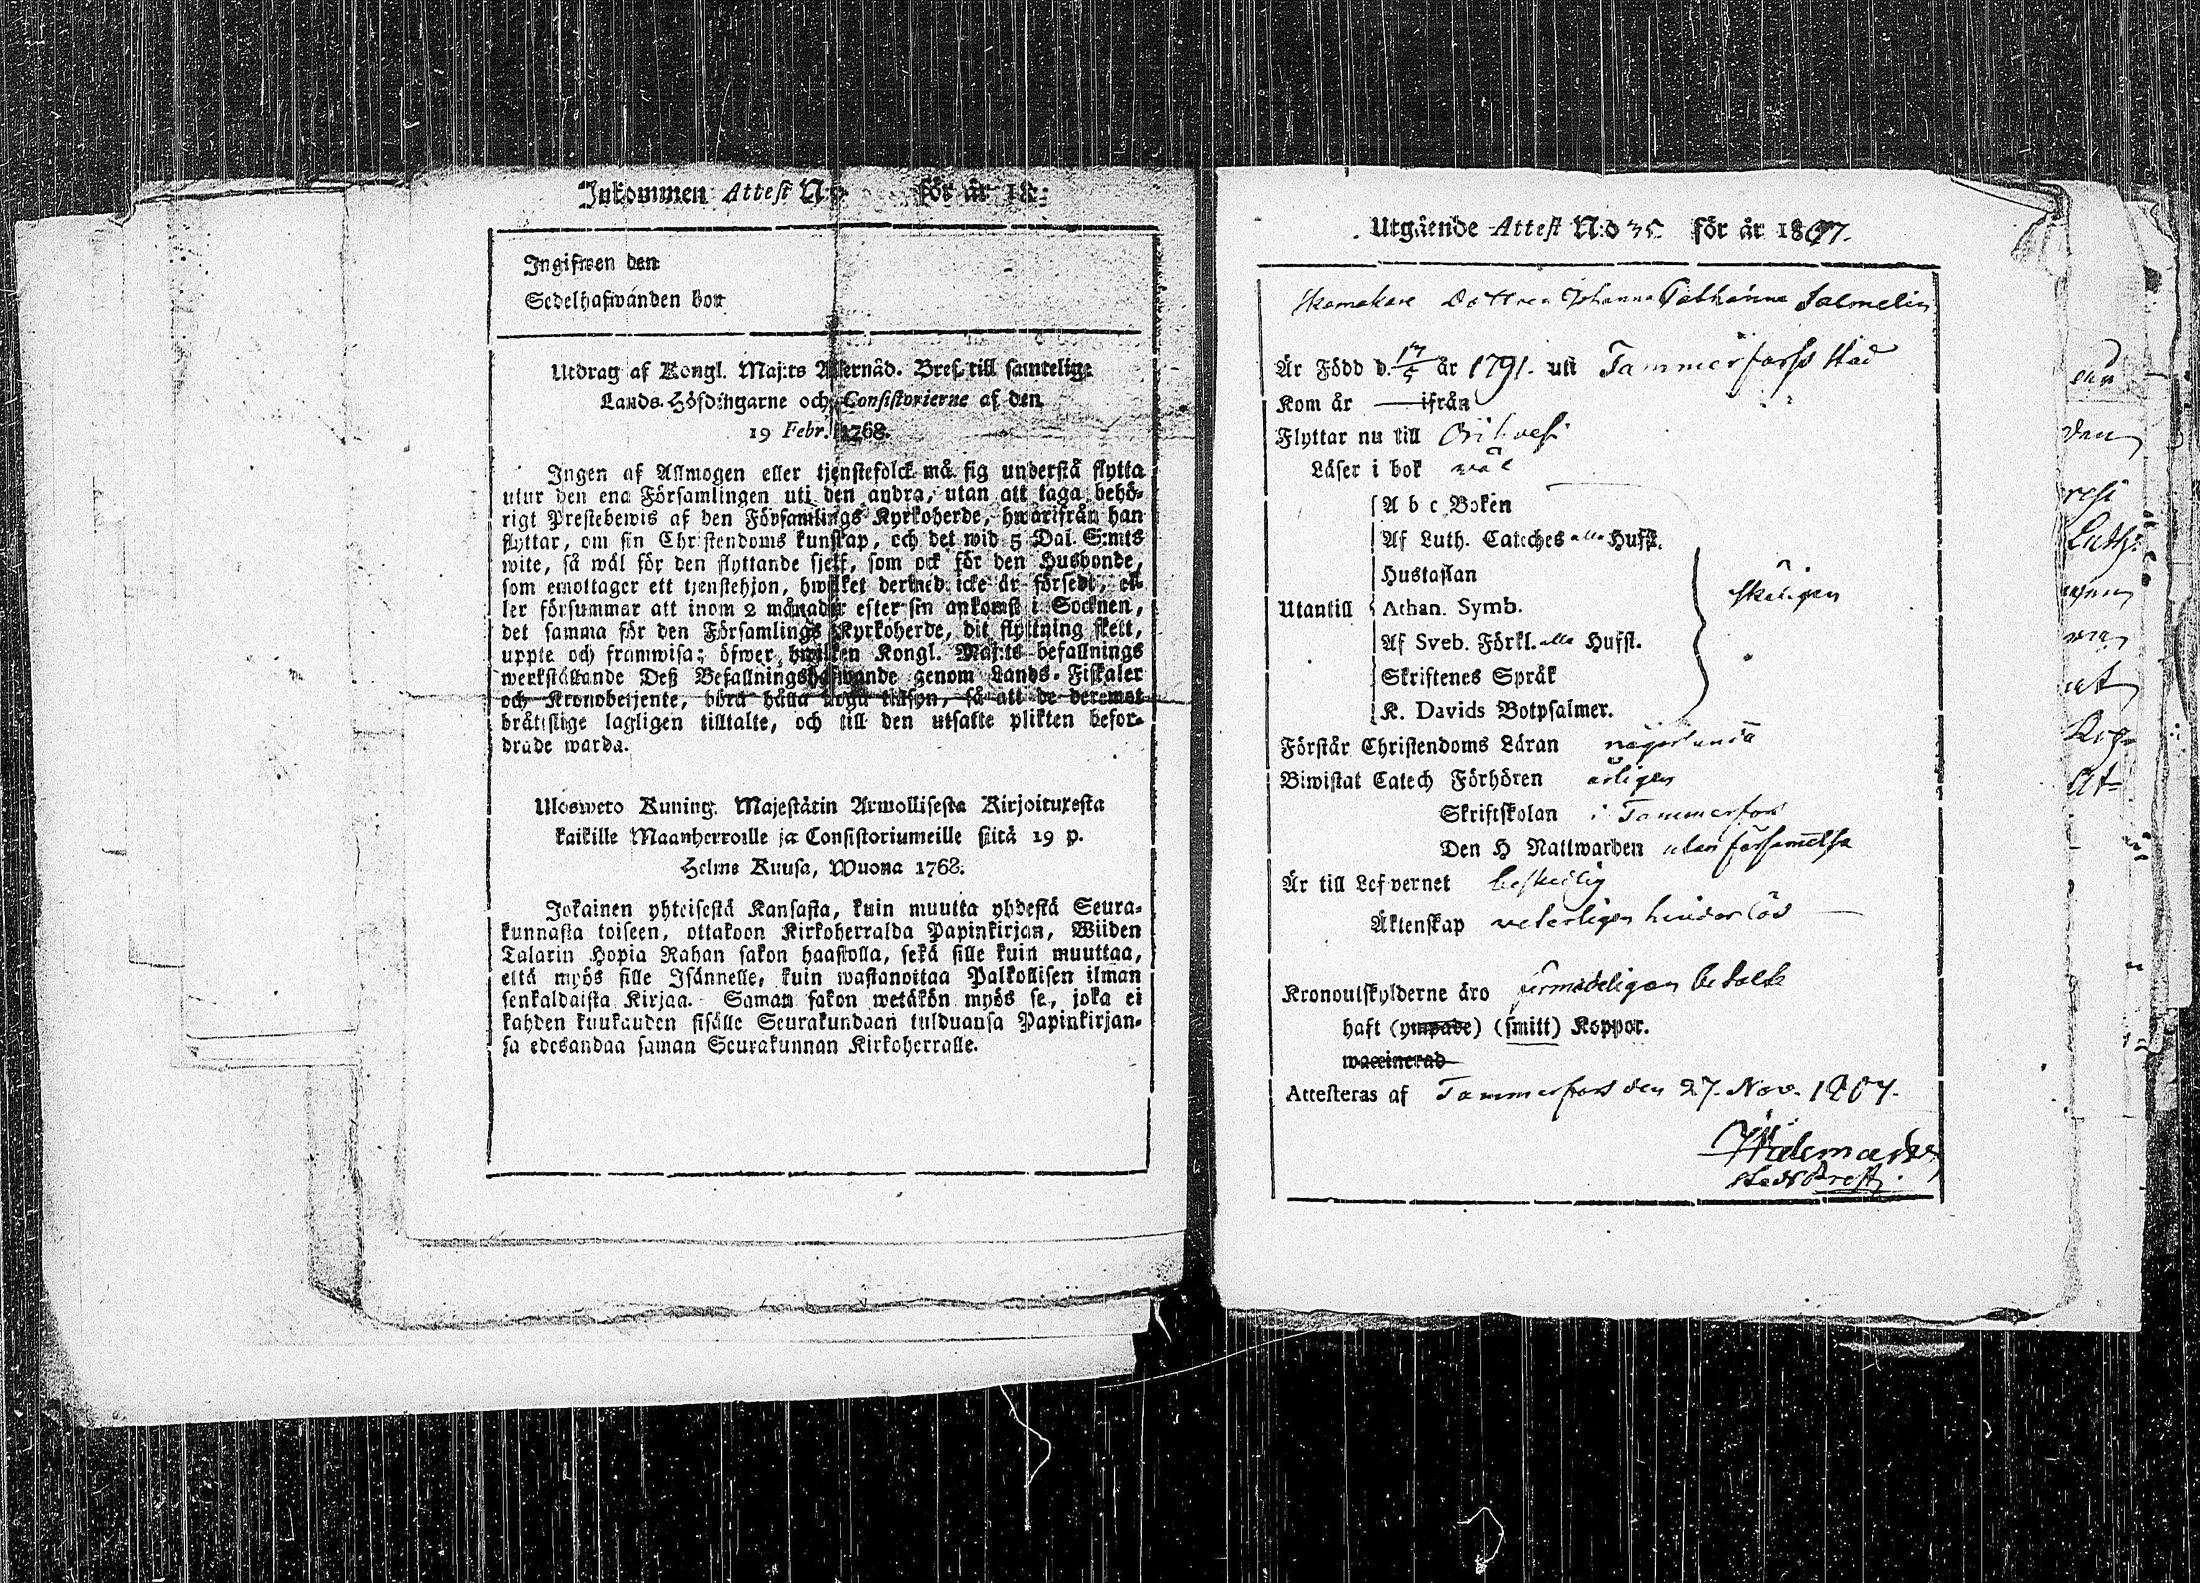 Inkommen Attest N:o för år 18
Ingifwen den
Sedelhafwanden bor
Utdrag af Kongl. Maj:ts Allernåd. Bref till samtelige
Lands-Höfdingarne och Consistorierne af den
19 Febr. 1768.
Ingen af Allmogen eller tjenstefolck må sig understå flytta
utur den ena Församlingen uti den andra, utan att taga behö-
rigt Prestebewis af den Församlings Kyrkoherde, hwarifrån han
flyttar, om sin Christendoms kunskap, och det wid 5 Dal. S:mts
wite, så wäl för den flyttande sjelf, som ock för den Husbonde,
som emottager ett tjenstehjon, hwilket dermed icke är försedt, el-
ler försummar att inom 2 månader efter sin ankomst i Socknen,
det samma för den Församlings Kyrkoherde, dit flyttning skett,
uppte och framwisa; öfwer hwilken Kongl. Maj:ts befallnings
werkställande Deß Befallningshafwande genom Lands-Fiskaler
och Kronobetjente, böra hålla noga tillsyn, så att de deremot
bråttslige lagligen tilltalte, och till den utsatte plikten befor-
drade warda.
Ulosweto Kuning. Majestätin Armollisesta Kirjoituxesta
kaikille Maanherroille ja Consistoriumeille siitä 19 p.
Helme Kuusa, Wuona 1768.
Jokainen yhteisestä Kansasta, kuin muutta yhdestä Seura-
kunnasta toiseen, ottakoon Kirkoherralda Papinkirjan, Wiiden
Talarin Hopia Rahan sakon haastolla, sekä sille kuin muuttaa,
että myös sille Isännelle, kuin wastanottaa Palkollisen ilman
senkaldaista Kirjaa. Saman sakon wetäkön myös se, joka ei
kahden kuukauden sisälle Seurakundaan tulduansa Papinkirjan-
sa edesandaa saman Seurakunnan Kirkoherralle.
Utgående Attest N:o 35 för år 1807.
Skomakare Dottren Johanna Catharina Salmelin
Är Född d. 17/5 år 1791. uti Tammerforss stad
Kom år — ifrån
Flyttar nu till Orihvesi
Läser i bok väl
A b c Boken
Af Luth. Cateches alla Hufst.
Hustaflan
Utantill Athan. Symb. skäligen
Af Sveb. Förkl. alla Hufst.
Skriftenes Språk
K. Davids Botpsalmer.
Förstår Christendoms Läran någorlunda
Biwistat Catech Förhören årligen
Skriftskolan i Tammerfors
Den H Nattwarden utan försummelse
Är till Lefvernet beskedlig
Äktenskap veterligen hinderlös
Kronoutskylderne äro förmodeligen betalte
haft (ympade) (smitt) Koppor.
waccinerad
Attesteras af Tammerfors den 27. Nov. 1807.